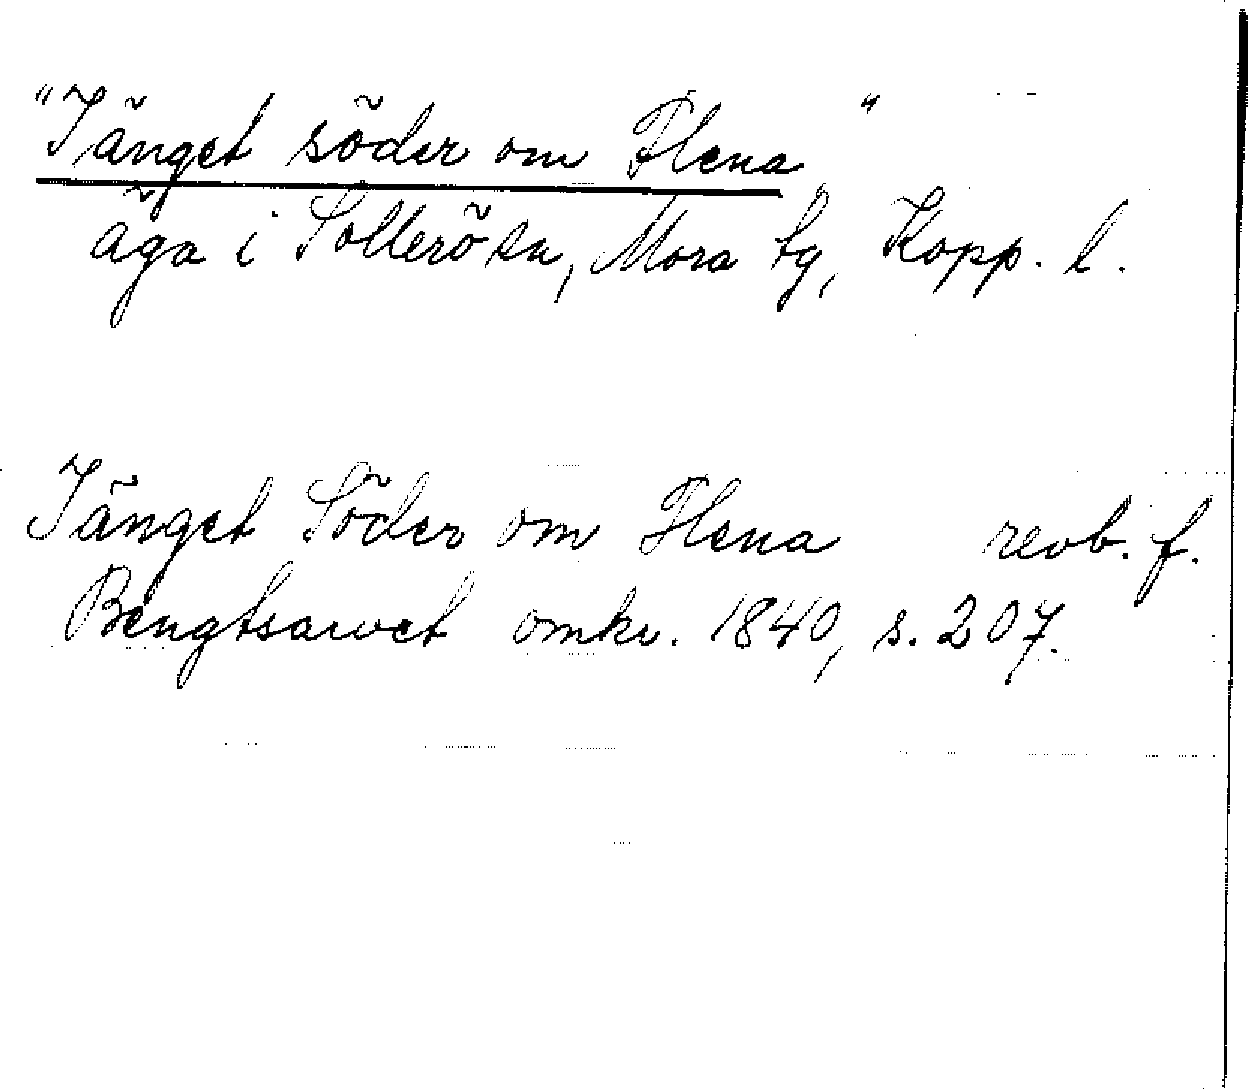 "Tänget söder om Flena"
äga i Sollerö sn, Mora tg, Kopp. l.
Tänget Söder om Flena revb. f.
Bengtsarvet omkr. 1840, s. 207.